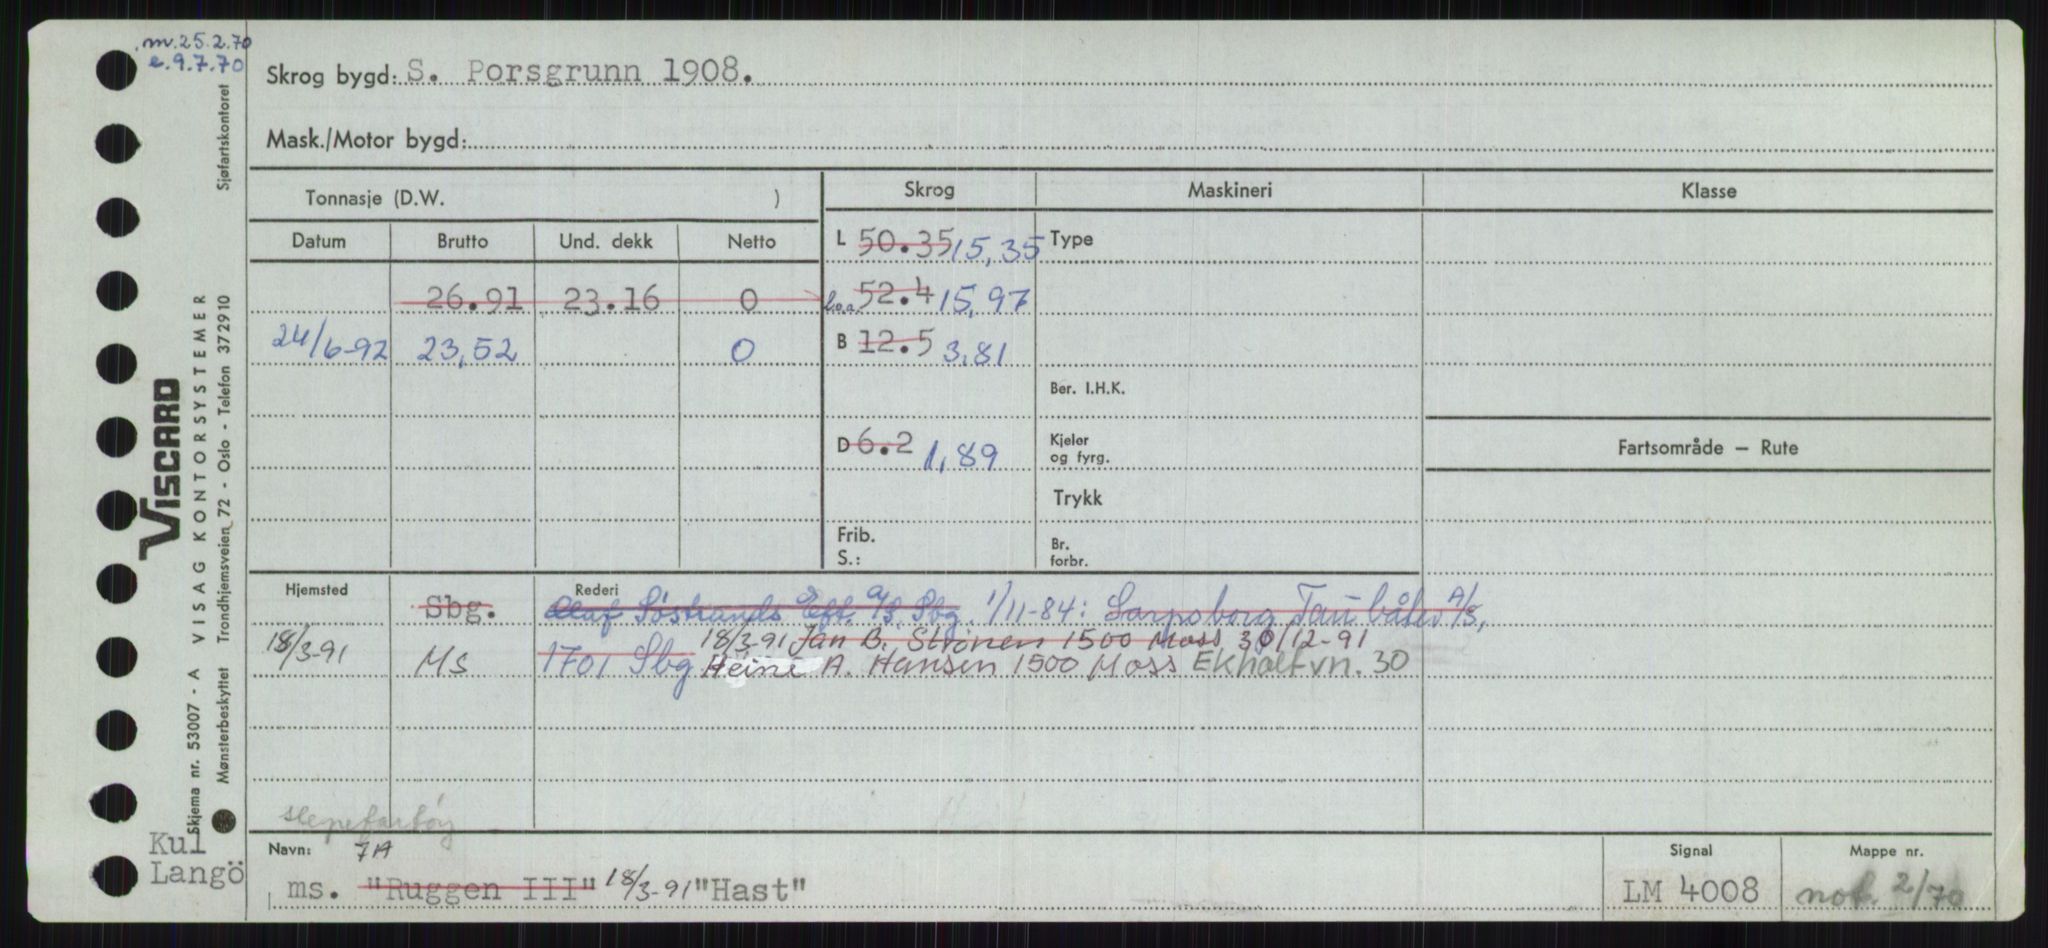 m.25.2.70
e.9.7.70
Skrog bygd: S. Porsgrunn 1908.
Mask./Motor bygd:
Sjøfartskontoret
Tonnasje (D.W. )
Skrog
Maskineri
Klasse
Datum Brutto Und. dekk Netto
L 50.35 15,35
Type
26.91 23.16 0
l.o.a. 52.4 15,97
24/6-92 23,52 0
B 12.5 3,81
Ber. I.H.K.
D 6.2 1,89
Kjeler
og fyrg.
Fartsområde — Rute
Trykk
Frib.
S.:
Br.
forbr.
Hjemsted
Rederi
Sbg. Olaf Søstrands Eft. A/S, Sbg. 1/11-84: Sarpsborg Taubåter A/S,
18/3-91 Jan B. Strönen 1500 Moss 30/12-91
18/3-91 Ms 1701 Sbg Heine A. Hansen 1500 Moss Ekholtvn. 30
slepefartøy
Navn: 7A
ms. "Ruggen III" 18/3-91 "Hast"
Signal
LM 4008
Mappe nr.
not. 2/70
VISCARD
Skjema nr. 53007 - A VISAG KONTORSYSTEMER
Mønsterbeskyttet Trondhjemsveien 72 - Oslo - Telefon 372910
Kul
Langö